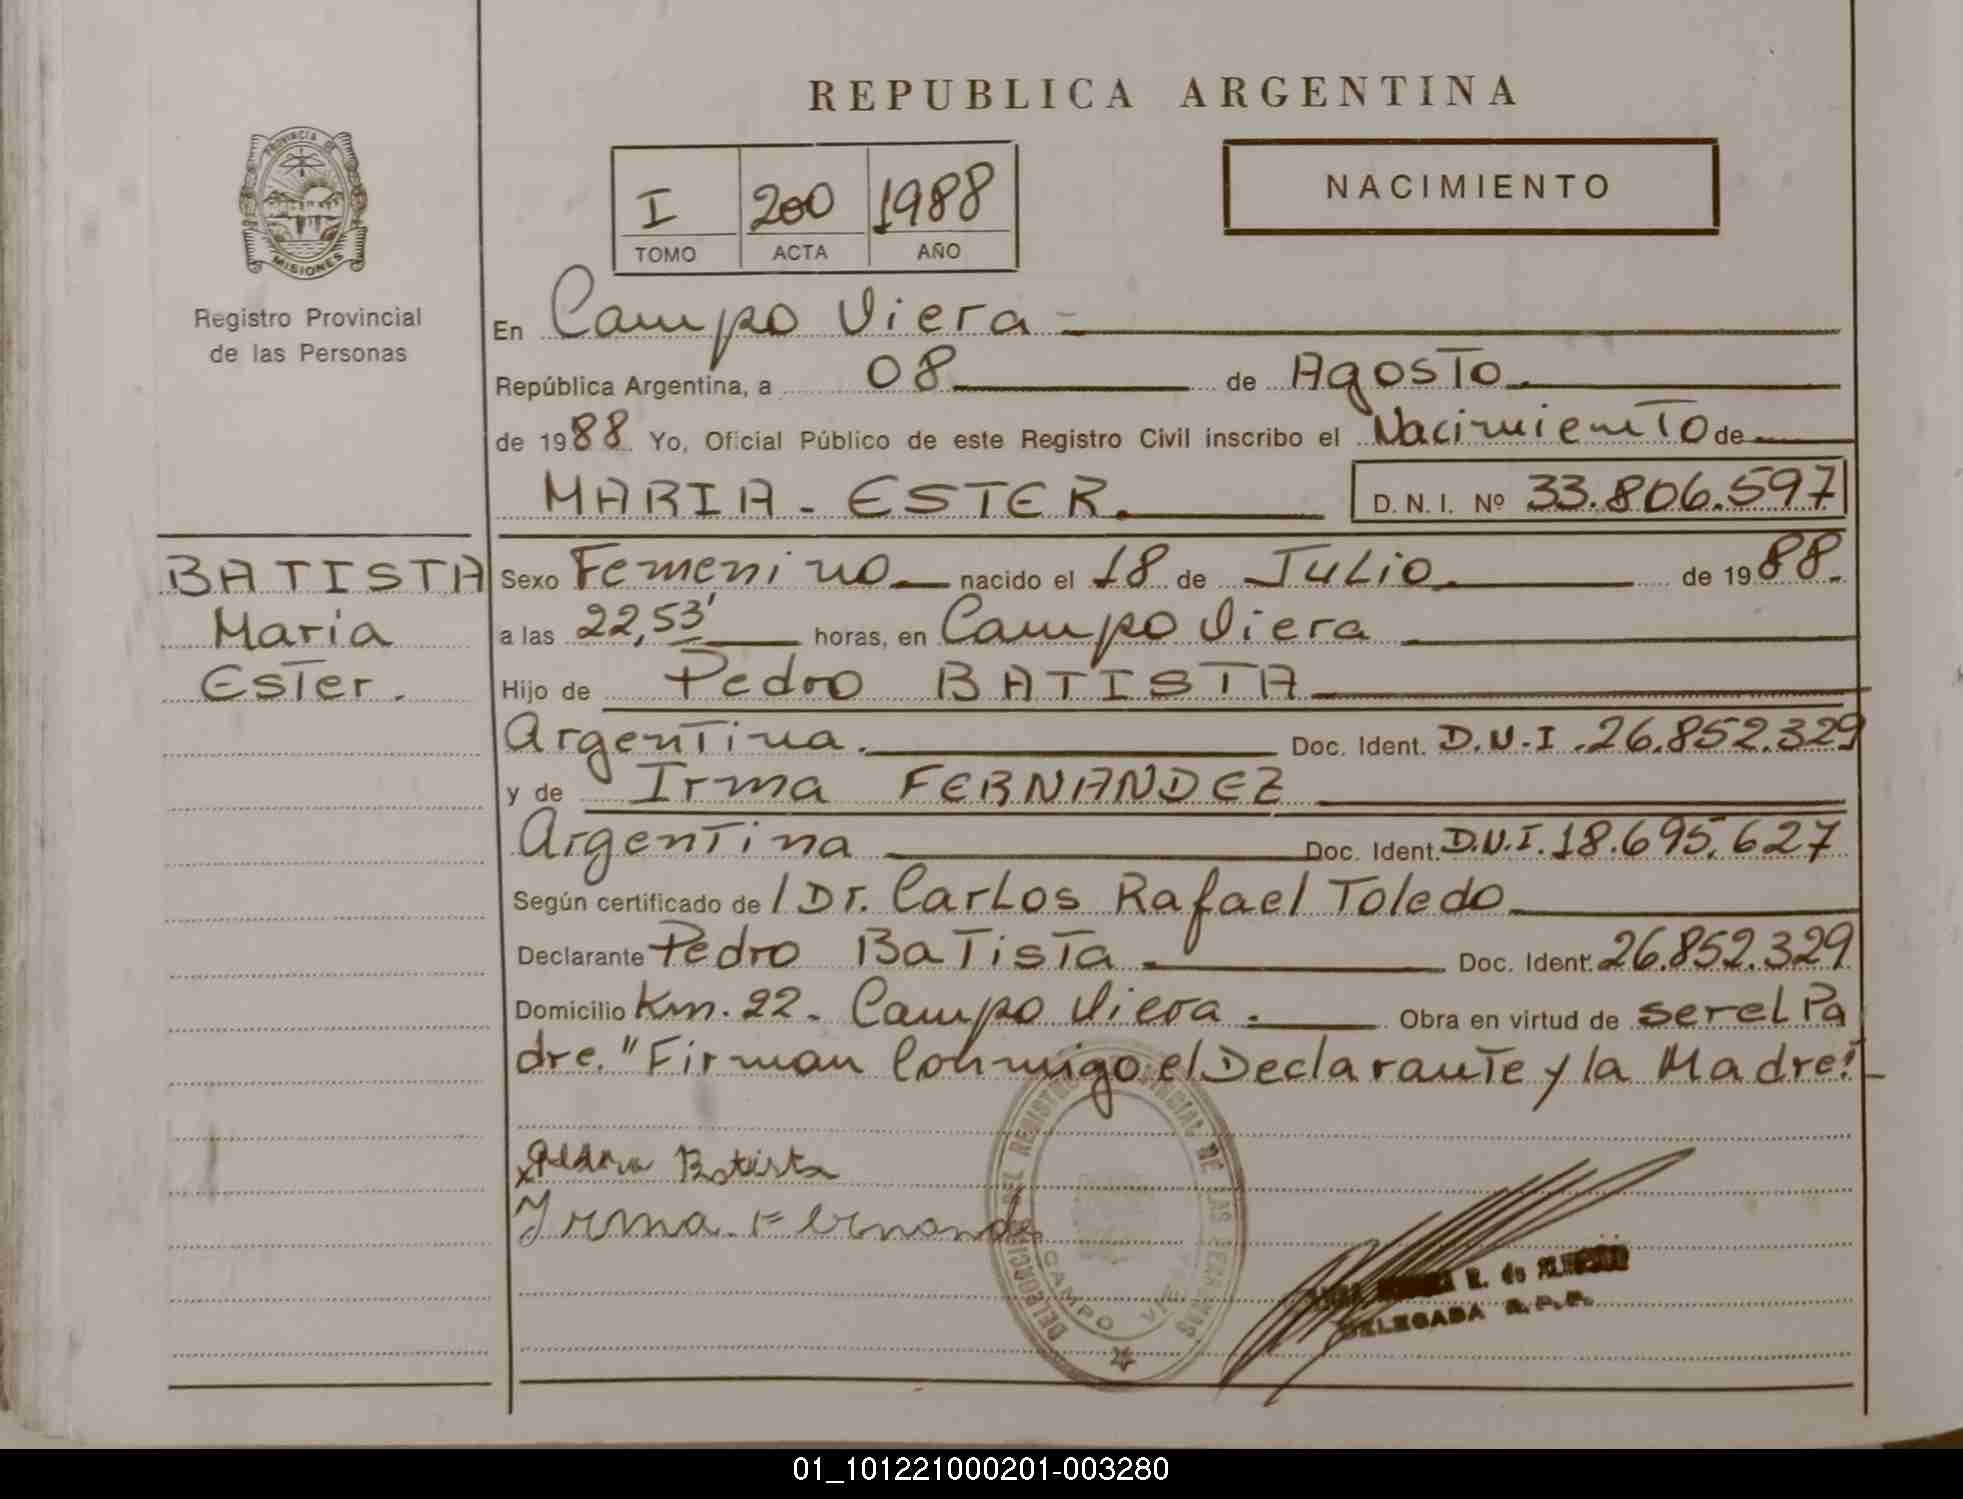 REPUBLICA ARGENTINA
PROVINCIA DE
MISIONES
Registro Provincial
de las Personas
I 200 1988
TOMO ACTA AÑO
NACIMIENTO
En Campo Viera
República Argentina, a 08 de Agosto.
de 1988 Yo, Oficial Público de este Registro Civil inscribo el Nacimiento de
MARIA - ESTER. D. N. I. Nº 33.806.597
BATISTA
Maria
Ester.
Sexo Femenino nacido el 18 de Julio. de 1988.
a las 22,53' horas, en Campo Viera
Hijo de Pedro BATISTA
Argentina. Doc. Ident. D.N.I. 26.852.329
y de Irma FERNANDEZ
Argentina Doc. Ident. D.N.I. 18.695.627
Según certificado de / Dr. Carlos Rafael Toledo
Declarante Pedro Batista Doc. Ident. 26.852.329
Domicilio Km. 22 - Campo Viera. Obra en virtud de ser el Pa
dre. "Firman Conmigo el Declarante y la Madre!
Pedro Batista
Irma Fernandez
DEL REGISTRO PROVINCIAL DE LAS PERSONAS
CAMPO VIERA
R. de
DELEGADA R.P.P.
01_101221000201-003280